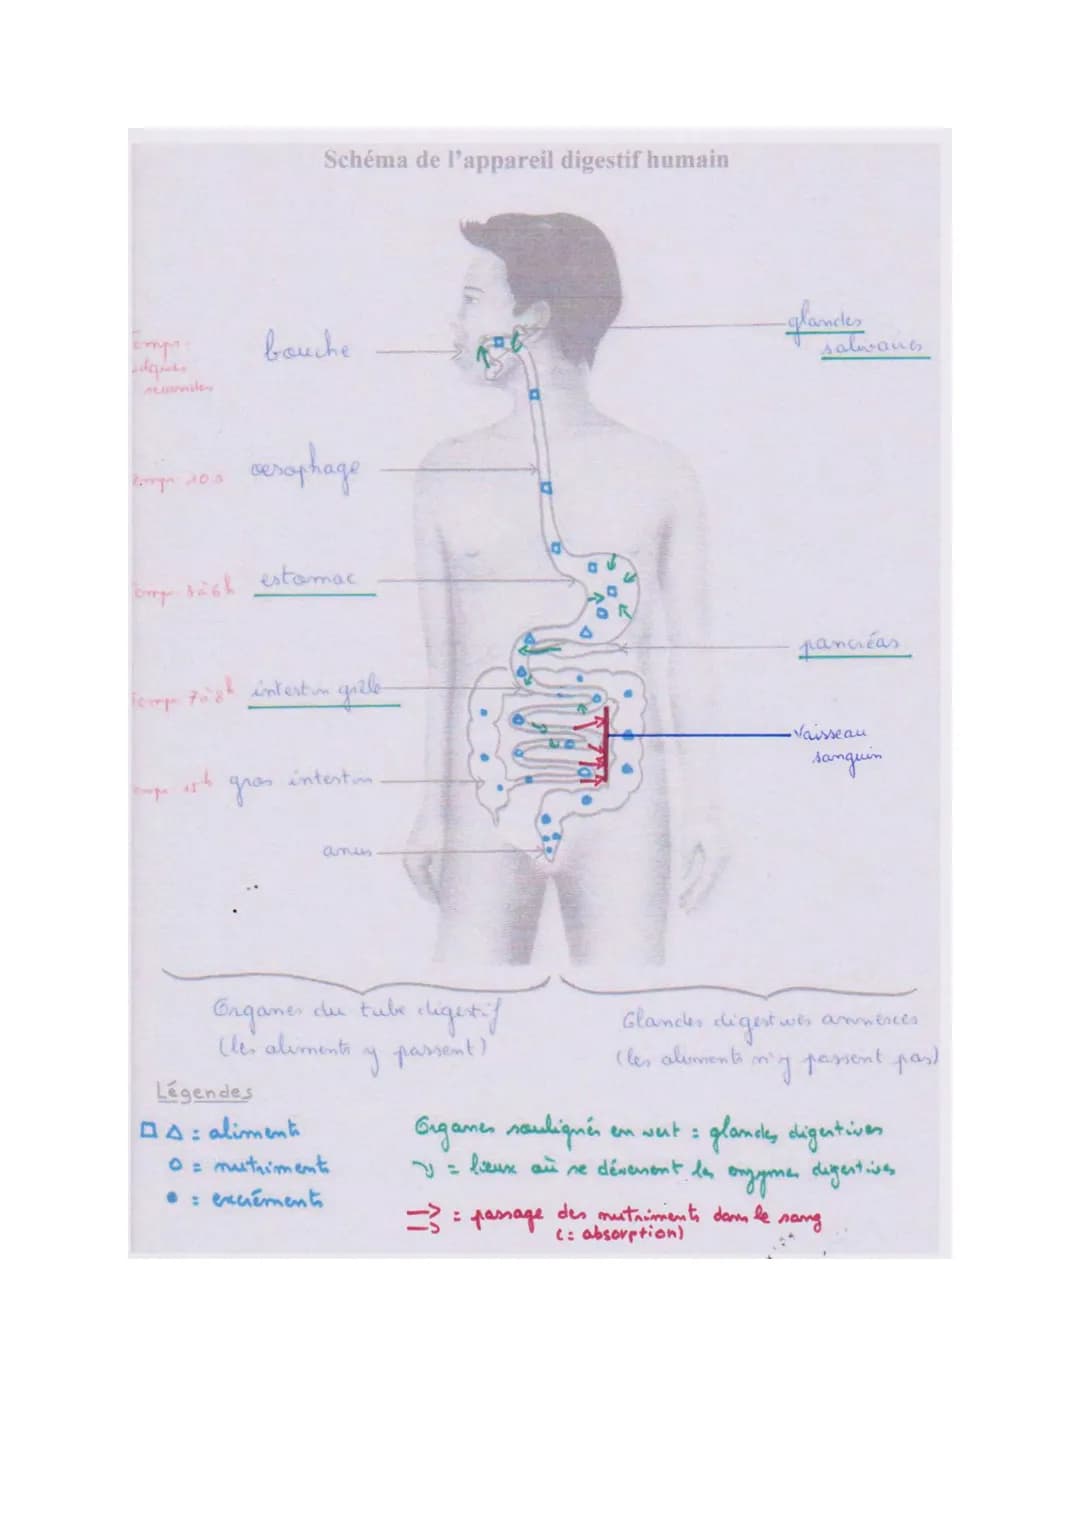 Schéma de l'appareil digestif humain
glandes
salivaires
bouche
secondes
oesophage
estomac
pancréas
intestin grêle
Vaisseau
sanguin
gros intestin
anus
Organes du tube digestif
(les aliments y passent)
Glandes digestives annexées
(les aliments n'y passent pas)
Légendes
: aliments
= nutriments
: excréments
Organes soulignés en vert = glandes digestives
= lieux où se déversent les enzymes digestives
= passage des nutriments dans le sang
(= absorption)